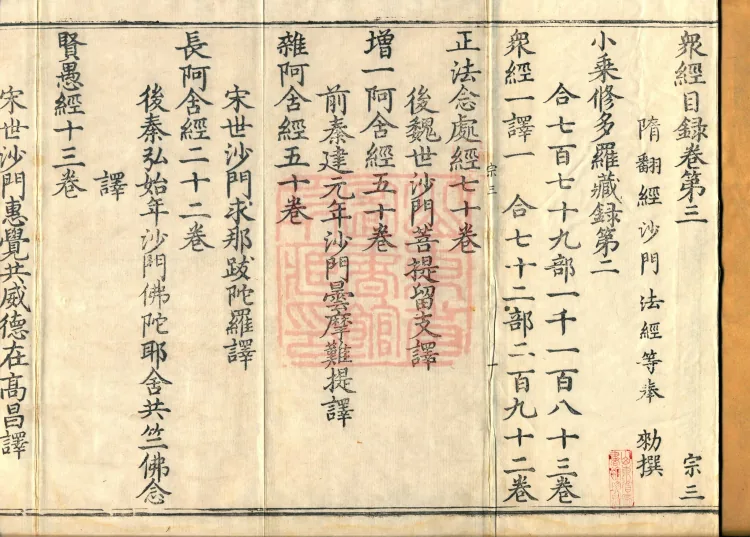 衆經目錄卷第三 宗三
隋翻經沙門法經等奉 勑撰
小乘修多羅藏録第二
合七百七十九部一千一百八十三卷
衆經一譯一 合七十二部二百九十二卷
宗三 一
正法念處經七十卷
後魏世沙門菩提留支譯
增一阿舍經五十卷
前秦建元年沙門曇摩難提譯
雜阿舍經五十卷
宋世沙門求那跋陀羅譯
長阿舍經二十二卷
後秦弘始年沙門佛陀耶舍共竺佛念
譯
賢愚經十三卷
宋世沙門惠覺共威德在高昌譯